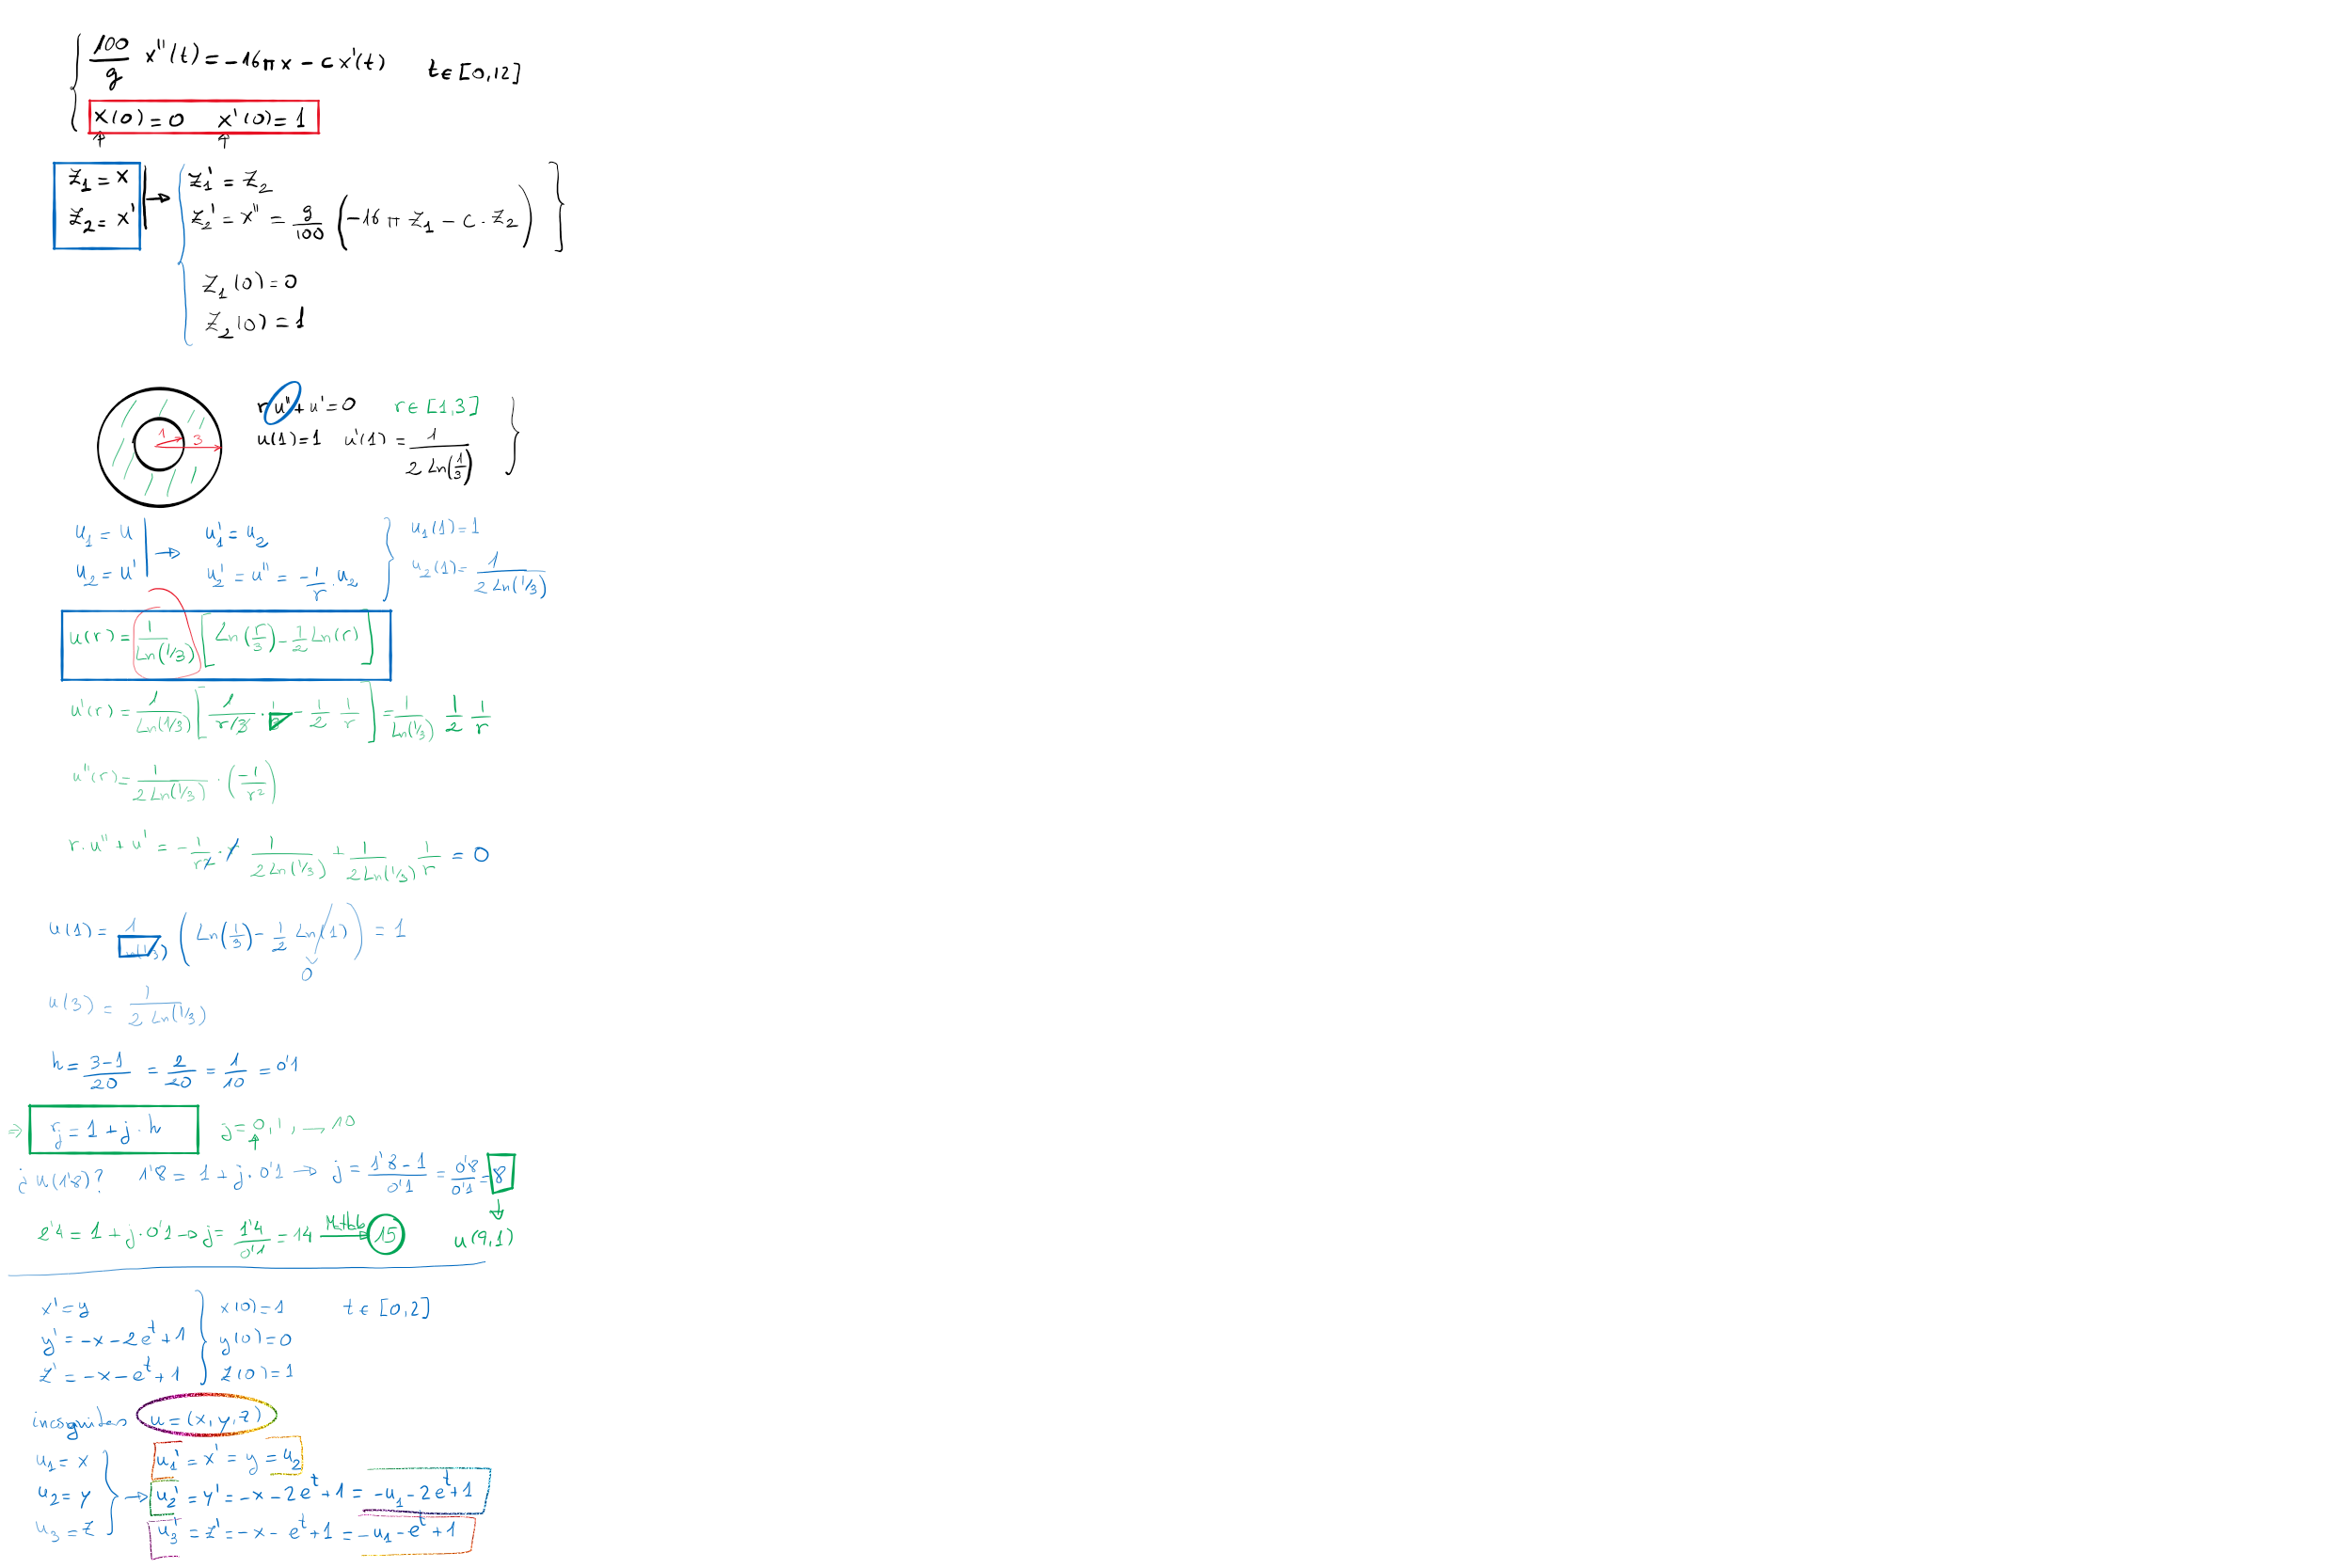 100/g x''(t) = -16πx - c x'(t)   t ∈ [0,12]
x(0) = 0   x'(0) = 1
z₁ = x → z₁' = z₂
z₂ = x'   z₂' = x'' = g/100 (-16π z₁ - c · z₂)
z₁(0) = 0
z₂(0) = 1
1   3
r u'' + u' = 0   r ∈ [1,3]
u(1) = 1   u'(1) = 1/(2 Ln(1/3))
u₁ = u → u₁' = u₂   u₁(1) = 1
u₂ = u'   u₂' = u'' = -1/r · u₂   u₂(1) = 1/(2 Ln(1/3))
u(r) = 1/Ln(1/3) [Ln(r/3) - 1/2 Ln(r)]
u'(r) = 1/Ln(1/3) [1/(r/3) · 1/3 - 1/2 1/r] = 1/Ln(1/3) 1/2 1/r
u''(r) = 1/(2 Ln(1/3)) · (-1/r²)
r · u'' + u' = -1/r² · r 1/(2 Ln(1/3)) + 1/(2 Ln(1/3)) 1/r = 0
u(1) = 1/Ln(1/3) (Ln(1/3) - 1/2 Ln(1)) = 1
0
u(3) = 1/(2 Ln(1/3))
h = (3-1)/20 = 2/20 = 1/10 = 0'1
⇒ rⱼ = 1 + j · h   j = 0, 1, — 10
¿ u(1'8)?   1'8 = 1 + j · 0'1 → j = (1'8 - 1)/0'1 = 0'8/0'1 = 8
2'4 = 1 + j · 0'1 → j = 1'4/0'1 = 14 Matlab→ 15   u(9,1)
x' = y   x(0) = 1   t ∈ [0,2]
y' = -x - 2eᵗ + 1   y(0) = 0
z' = -x - eᵗ + 1   z(0) = 1
incognitas u = (x, y, z)
u₁ = x   u₁' = x' = y = u₂
u₂ = y → u₂' = y' = -x - 2eᵗ + 1 = -u₁ - 2eᵗ + 1
u₃ = z   u₃' = z' = -x - eᵗ + 1 = -u₁ - eᵗ + 1